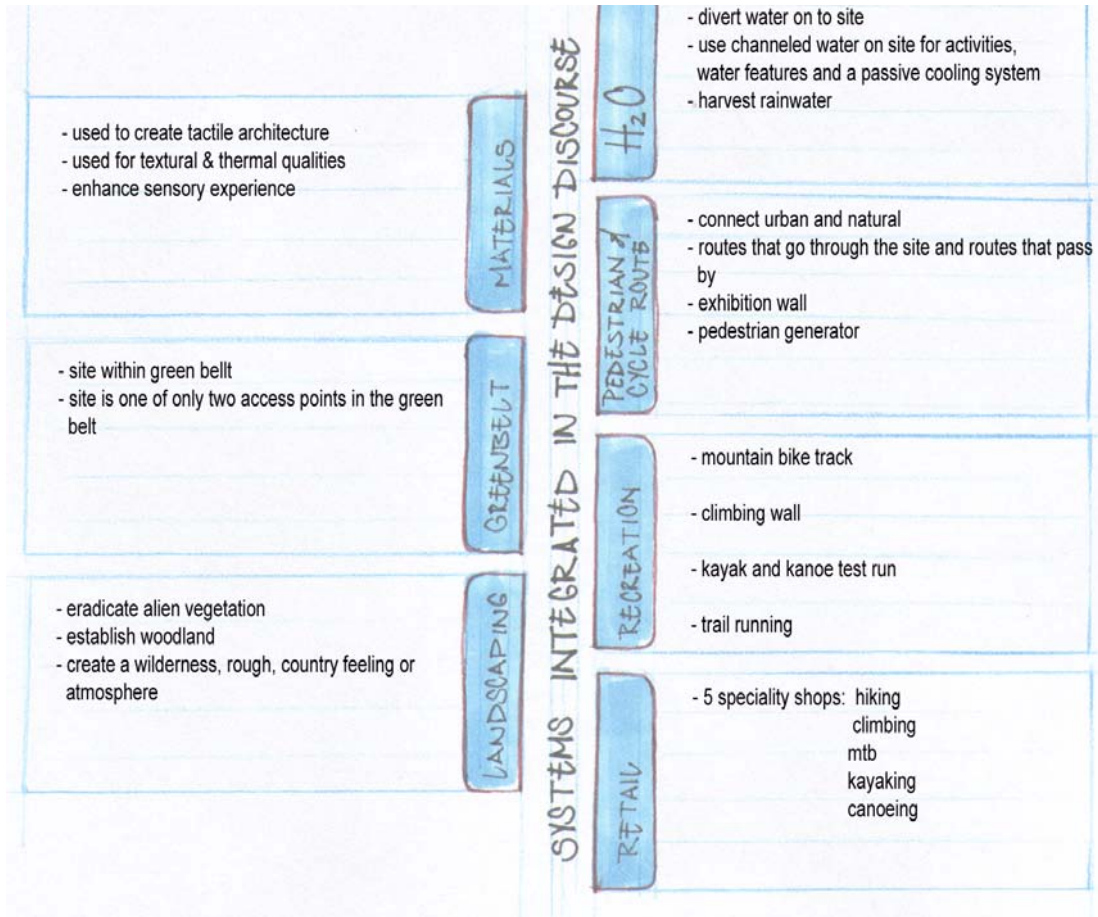 - used to create tactile architecture
- used for textural & thermal qualities
- enhance sensory experience
MATERIALS
- site within green bellt
- site is one of only two access points in the green
belt
GREENBELT
- eradicate alien vegetation
- establish woodland
- create a wilderness, rough, country feeling or
atmosphere
LANDSCAPING
SYSTEMS INTEGRATED IN THE DESIGN DISCOURSE
H₂O
- divert water on to site
- use channeled water on site for activities,
water features and a passive cooling system
- harvest rainwater
PEDESTRIAN &
CYCLE ROUTE
- connect urban and natural
- routes that go through the site and routes that pass
by
- exhibition wall
- pedestrian generator
RECREATION
- mountain bike track
- climbing wall
- kayak and kanoe test run
- trail running
RETAIL
- 5 speciality shops: hiking
climbing
mtb
kayaking
canoeing